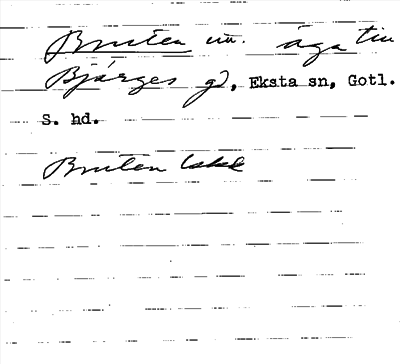 Bruten m. äga till
Bjärges gd, Eksta sn, Gotl.
S. hd.
Bruten